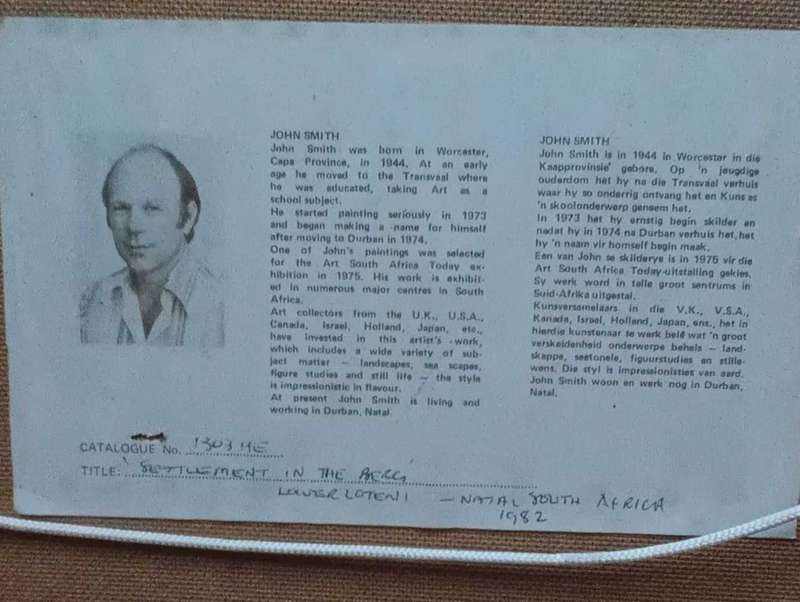 JOHN SMITH
John Smith was born in Worcester,
Cape Province, in 1944. At an early
age he moved to the Transvaal where
he was educated, taking Art as a
school subject.
He started painting seriously in 1973
and began making a name for himself
after moving to Durban in 1974.
One of John's paintings was selected
for the Art South Africa Today ex-
hibition in 1975. His work is exhibit-
ed in numerous major centres in South
Africa.
Art collectors from the U.K., U.S.A.,
Canada, Israel, Holland, Japan, etc.,
have invested in this artist's work,
which includes a wide variety of sub-
ject matter – landscapes, sea scapes,
figure studies and still life – the style
is impressionistic in flavour.
At present John Smith is living and
working in Durban, Natal.
JOHN SMITH
John Smith is in 1944 in Worcester in die
Kaapprovinsie gebore. Op 'n jeugdige
ouderdom het hy na die Transvaal verhuis
waar hy so onderrig ontvang het en Kuns as
'n skoolonderwerp geneem het.
In 1973 het hy ernstig begin skilder en
nadat hy in 1974 na Durban verhuis het, het
hy 'n naam vir homself begin maak.
Een van John se skilderye is in 1975 vir die
Art South Africa Today-uitstalling gekies.
Sy werk word in talle groot sentrums in
Suid-Afrika uitgestal.
Kunsversamelaars in die V.K., V.S.A.,
Kanada, Israel, Holland, Japan, ens., het in
hierdie kunstenaar se werk belê wat 'n groot
verskeidenheid onderwerpe behels – land-
skappe, seetonele, figuurstudies en stille-
wens. Die styl is impressionisties van aard.
John Smith woon en werk nog in Durban,
Natal.
CATALOGUE No. 1303
TITLE: 'SETTLEMENT IN THE BERG'
LOWER LOTENI – NATAL SOUTH AFRICA
1982